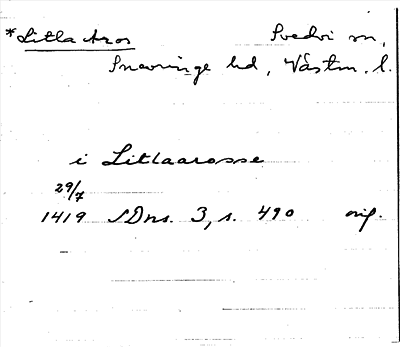 *Litla Aros Svedvi sn,
Snevringe hd, Västm. l.
i Litlaarosse
29/7
1419 SDns. 3, s. 490 orig.